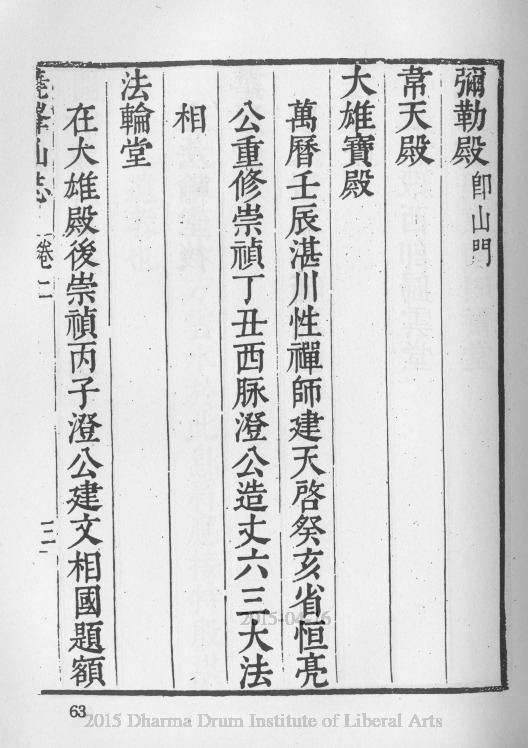 彌勒殿即山門
韋天殿
大雄寶殿
萬曆壬辰湛川性禪師建天啓癸亥省恒亮
公重修崇禎丁丑西脉澄公造丈六三大法
相
法輪堂
在大雄殿後崇禎丙子澄公建文相國題額
堯峯山志 卷二 三
63
2015-04-16
2015 Dharma Drum Institute of Liberal Arts